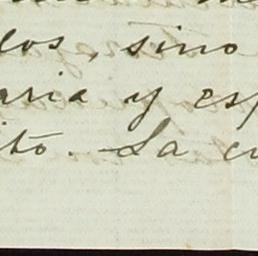 los, sino
aria y esp
ito. La cu